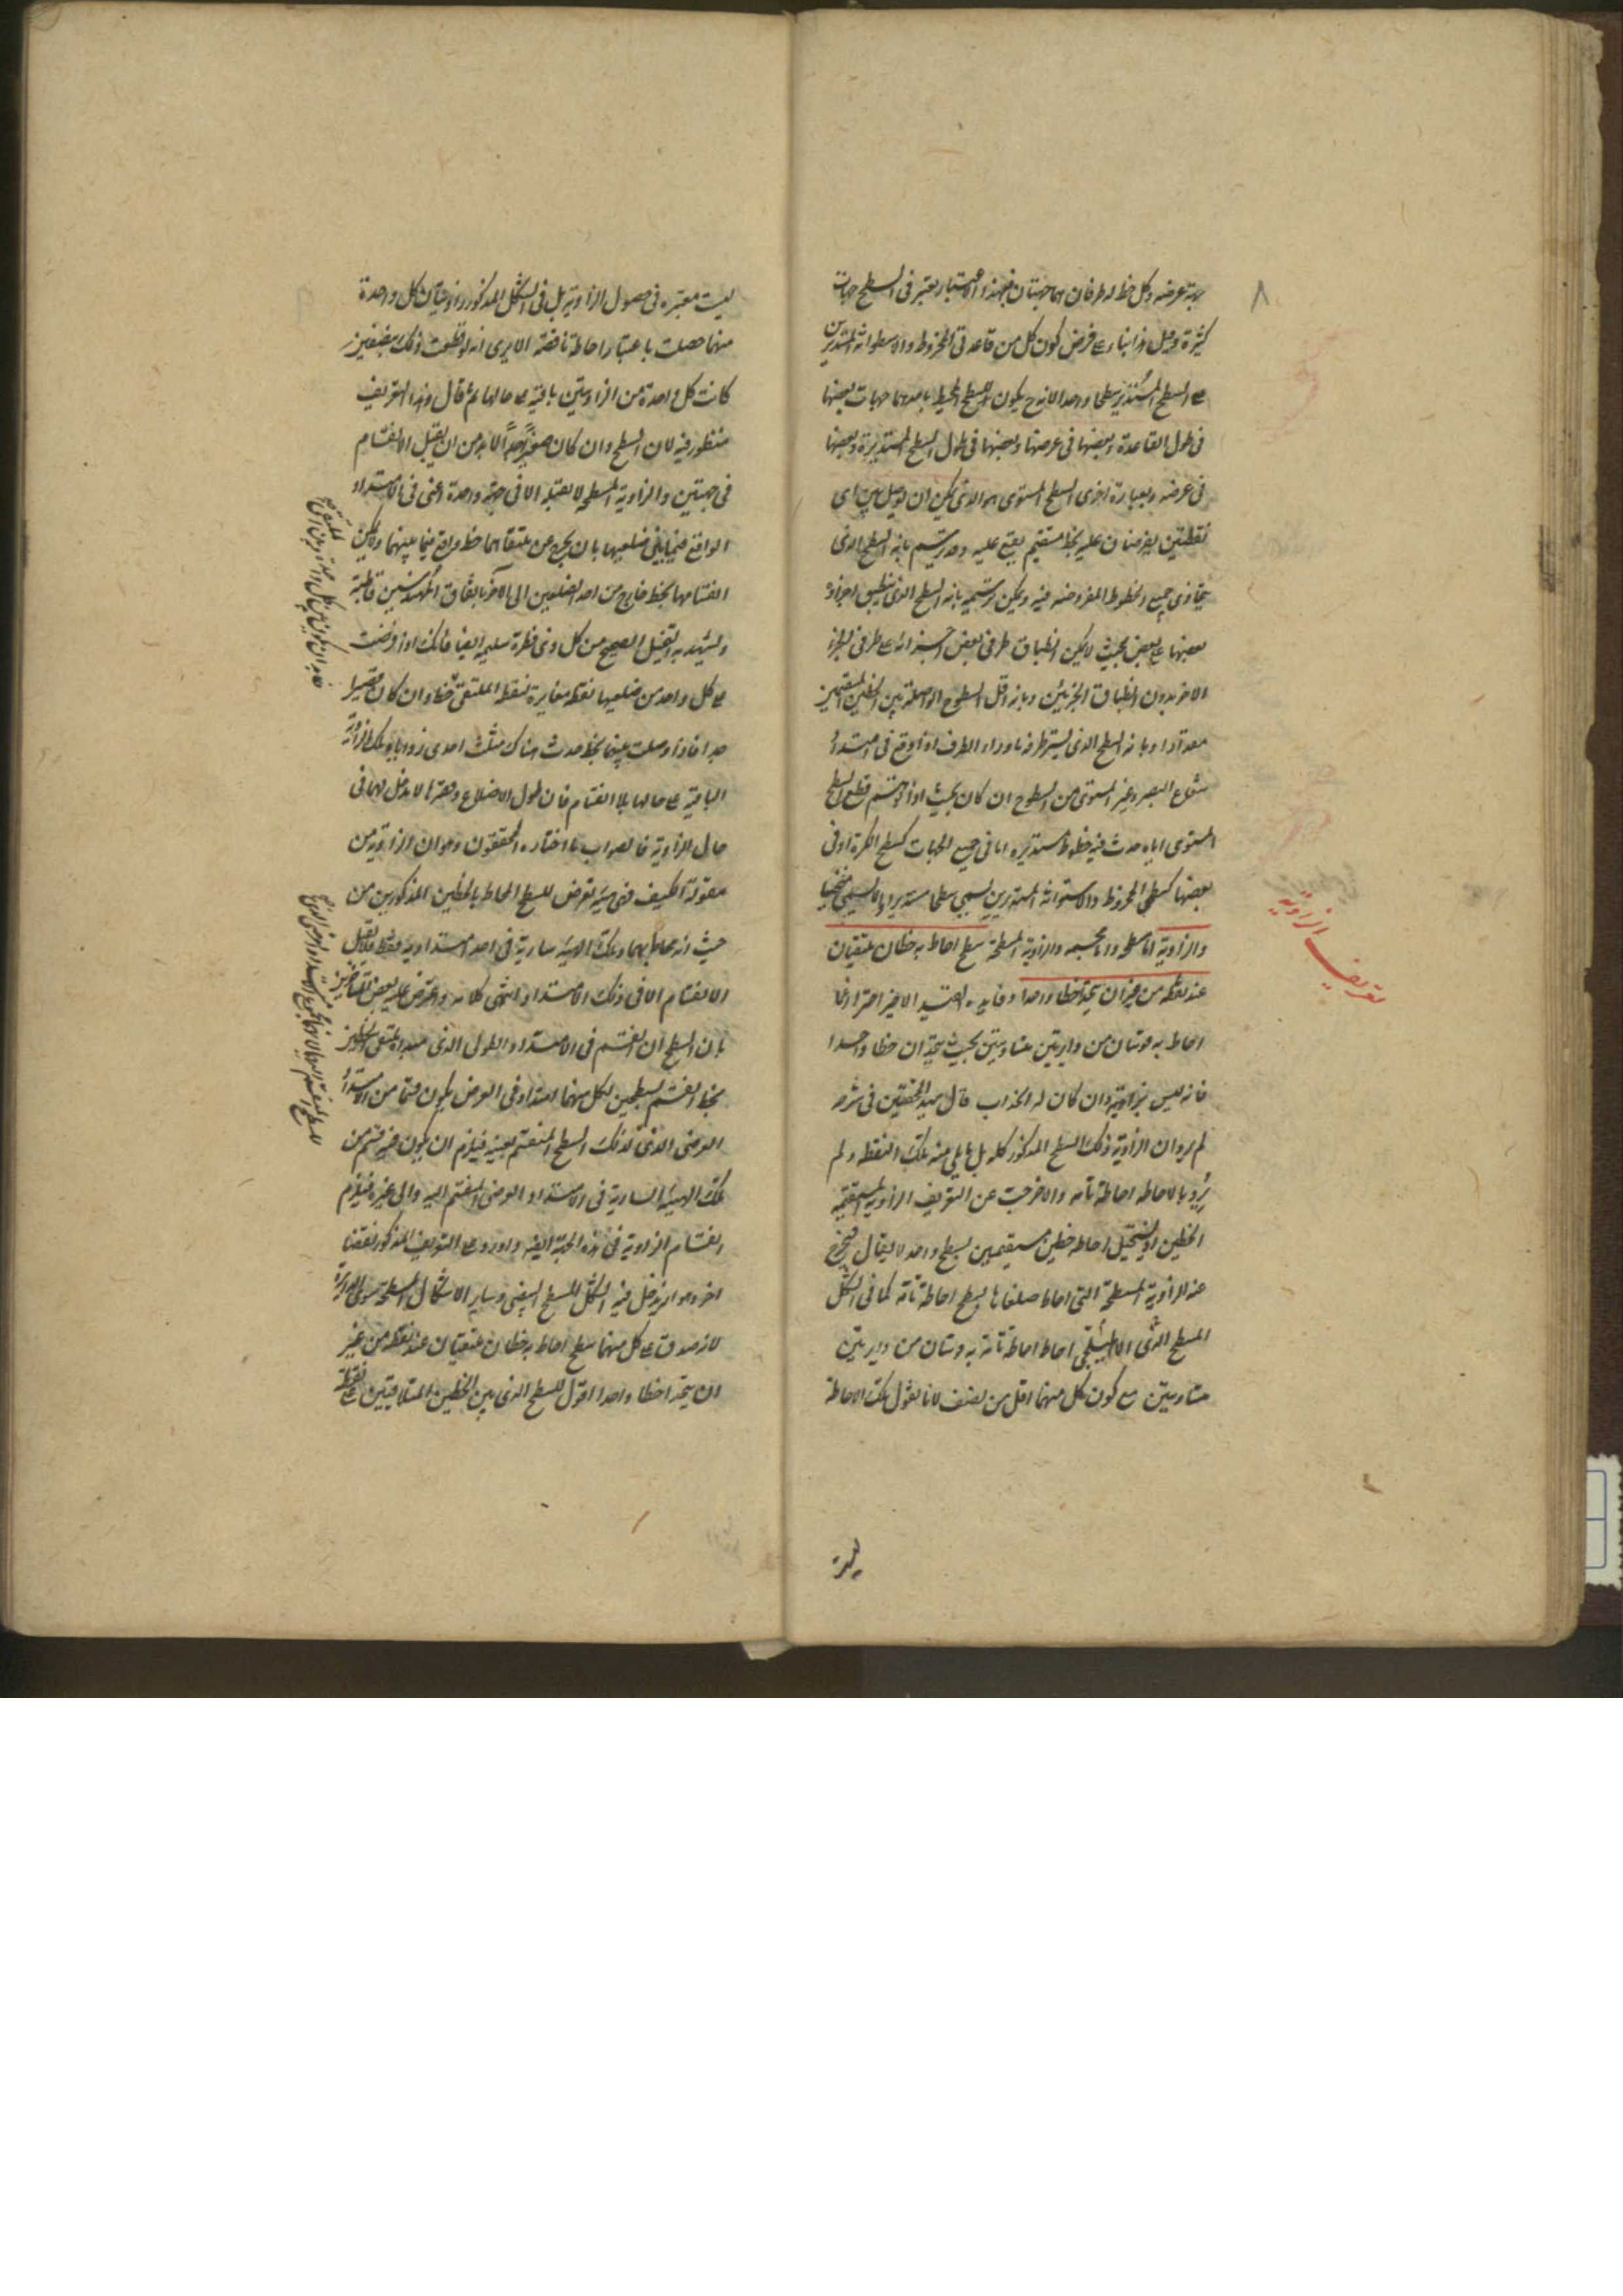 ٨
جهة عرضه وكل خط له طرفان هما جهتان فبهذا الاعتبار يعتبر فى السطح جهات
كثيرة وقيل هذا بناء على فرض كون كل من قاعدتى المخروط والاسطوانة المستديرين
على السطح المستدير سطحا واحدا لانه ح يكون للسطح المحيط باحدهما جهات بعضها
فى طول القاعدة وبعضها فى عرضها وبعضها فى طول السطح المستديرة وبعضها
فى عرضه وبعبارة اخرى السطح المستوى هو الذى يمكن ان يوصل بين اى
نقطتين يفرضان عليه بخط مستقيم يقع عليه وقد يرسم بانه السطح الذى
يحاذى جميع الخطوط المفروضة فيه ويمكن رسمه بانه السطح الذى ينطبق اجزاؤه
بعضها على بعض بحيث لا يمكن انطباق طرفى بعض اجزائه على طرفى الجزء
الاخر بدون انطباق الجزئين وبانه اقل السطوح الواصلة بين الخطين المستقيمين
مقدارا وبانه السطح الذى يستر طرفه ما وراء الطرف اذا وقع فى امتداد
شعاع البصر وغير المستوى من السطوح ان كان بحيث اذا توهم قطع السطح
المستوى اياه حدث فيه خطوط مستديره اما فى جميع الجهات كسطح الكرة او فى
بعضها كسطحى المخروط والاسطوانة المستديرين يسمى سطحا مستديرا والا يسمى منحنيا
والزاوية اما مسطحه واما مجسمه والزاوية المسطحة سطح احاط به خطان يلتقيان
عند نقطه من غير ان يتحدا خطا واحدا وفايدة القيد الاخير احتراز عما
احاط به قوسان من دايرتين متساويتين بحيث يتحدان خطا واحدا
فانه ليس بزاوية وان كان له انحداب قال سيد المحققين فى شرحه
لم يرد ان الزاوية ذلك السطح المذكور كله بل ما يلى منه تلك النقطه ولم
يرد بالاحاطه احاطة تامه والا خرجت عن التعريف الزاوية المستقيمة
الخطين اذ يستحيل احاطه خطين مستقيمين بسطح واحد لا يقال فيخرج
عنه الزاوية المسطحة التى احاط ضلعاها بسطح احاطة تامه كما فى الشكل
المسطح الذى احاط احاطة تامة به قوسان من دايرتين
متساويتين مع كون كل منهما اقل من نصف لانا نقول تلك الاحاطة
تعريف الزاوية
ليست
ليست معتبره فى حصول الزاوية بل فى الشكل المذكور زاويتان كل واحدة
منهما حصلت باعتبار احاطة ناقصة الا يرى انه لو قطعت ذلك بنصفين
كانت كل واحدة من الزاويتين باقية على حالها ثم قال وهذا التعريف
منظور فيه لان السطح وان كان صغيرا جدا لا بد من ان يقبل الانقسام
فى جهتين والزاوية المسطحه لا تقبله الا فى جهة واحدة اعنى فى الامتداد
الواقع فيما بين ضلعيها بان يخرج من ملتقاهما خط واقع فيما بينهما ولا يمكن
انقسامها بخط خارج من احد الضلعين الى الآخر باتفاق المهندسين قاطبة
ويشهد به التخيل الصحيح من كل ذى فطرة سليمه ايضا فانك اذا فرضت
على كل واحد من ضلعيها نقطه مغايرة لنقطة الملتقى خطا وان كان قصيرا
جدا فاذا وصلت بينهما بخط حدث هناك مثلث احدى زواياه تلك الزاوية
الباقية على حالها بلا انقسام فان طول الاضلاع وقصرها لا مدخل لهما فى
حال الزاوية فالصواب ما اختاره المحققون وهو ان الزاوية من
مقولة الكيف فهى هيئة تعرض للسطح المحاط بالخطين المذكورين من
حيث انه محاط بهما وتلك الهيئه سارية فى احد امتداديه فقط فلا تقبل
الانقسام الا فى ذلك الامتداد انتهى كلامه واعترض عليه بعض المتأخرين
بان السطح ان انقسم فى الامتداد الطولى الذى مبداه ملتقى الخطين
بخط انقسم بسطحين لكل منهما امتداد فى العرض يكون قسما من الامتداد
العرضى الذى لذلك السطح المنقسم بعينه فيلزم ان يكون فيه قسم من
تلك الهيئة السارية فى الامتداد العرضى المنقسم اليه والى غيره فيلزم
انقسام الزاوية فى هذه الجهة ايضا واورد على التعريف المذكور نقضا
اخر وهو انه يدخل فيه الشكل المسطح البيضى وساير الاشكال المسطحة سوى الدايرة
لانه صدق على كل منهما سطح احاط به خطان يلتقيان عند نقطه من غير
ان يتحدا خطا واحدا اقول السطح الذى بين الخطين المتلاقيين على نقطة